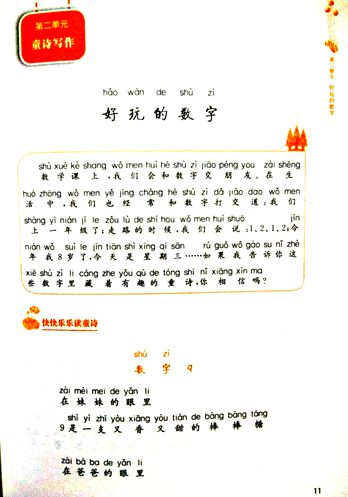 第二单元
童诗写作
第二单元 好玩的数字
hǎo wán de shù zì
好玩的数字
shù xué kè shang wǒ men huì hé shù zì jiāo péng you zài shēng
数学课上,我们会和数字交朋友。在生
huó zhōng wǒ men yě jīng cháng hé shù zì dǎ jiāo dao wǒ men
活中,我们也经常和数字打交道:我们
shàng yì nián jí le zǒu lù de shí hou wǒ men huì shuō jīn
上一年级了;走路的时候,我们会说:1、2、1、2;今
nián wǒ suì le jīn tiān shì xīng qī sān rú guǒ wǒ gào su nǐ zhè
年我8岁了,今天是星期三……如果我告诉你这
xiē shù zì lǐ cáng zhe yǒu qù de tóng shī nǐ xiāng xìn ma
些数字里藏着有趣的童诗,你相信吗?
快快乐乐读童诗
shù zì
数字 9
zài mèi mei de yǎn li
在妹妹的眼里
shì yì zhī yòu xiāng yòu tián de bàng bàng táng
9是一支又香又甜的棒棒糖
zài bà ba de yǎn li
在爸爸的眼里
11